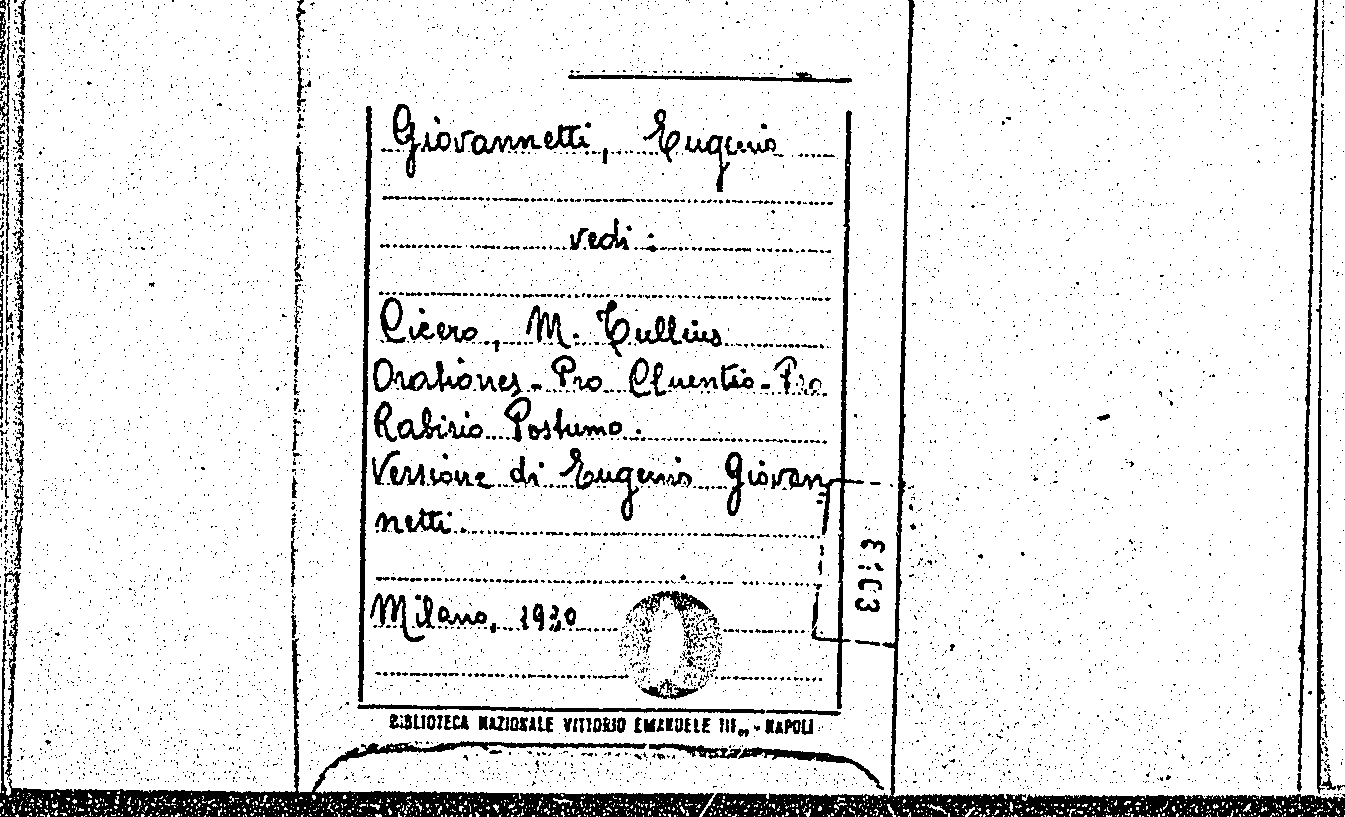 Giovannetti, Eugenio
vedi:
Cicero, M. Tullius
Orationes - Pro Cluentio - Pro
Rabirio Postumo.
Versione di Eugenio Giovan
netti.
3103
Milano, 1930
BIBLIOTECA NAZIONALE VITTORIO EMANUELE III„ - NAPOLI